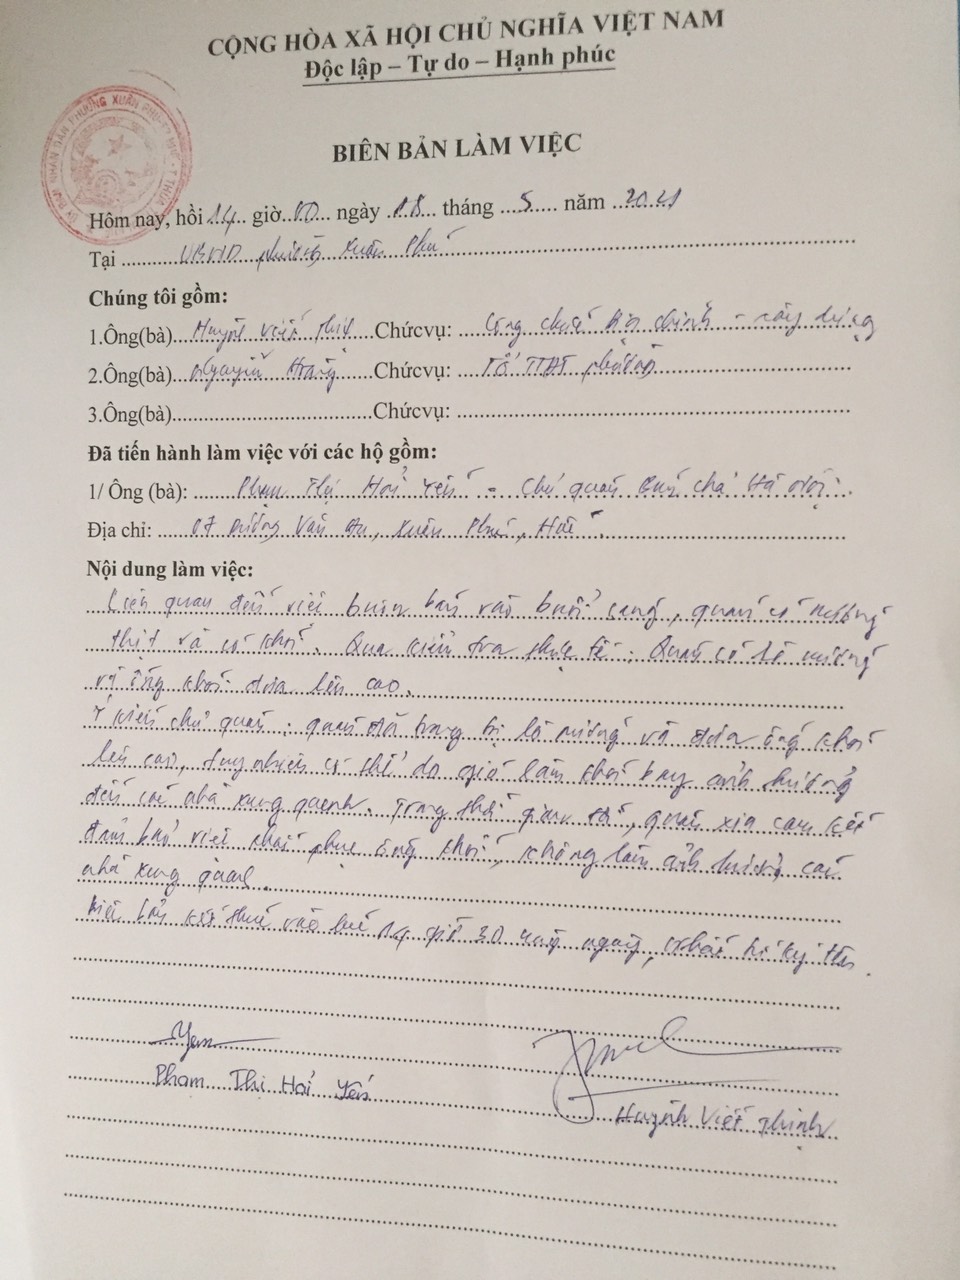 CỘNG HÒA XÃ HỘI CHỦ NGHĨA VIỆT NAM
Độc lập – Tự do – Hạnh phúc
BIÊN BẢN LÀM VIỆC
Hôm nay, hồi 14 giờ 00 ngày 18 tháng 5 năm 2021
Tại UBND phường Xuân Phú
Chúng tôi gồm:
1.Ông(bà) Huỳnh Viết Thịnh Chứcvụ: Công chức địa chính - xây dựng
2.Ông(bà) Nguyễn Hoàng Chứcvụ: Tổ TTĐT phường
3.Ông(bà) Chứcvụ:
Đã tiến hành làm việc với các hộ gồm:
1/ Ông (bà): Phạm Thị Hải Yến - Chủ quán Bún chả Hà Nội
Địa chỉ: 07 Dương Văn An, Xuân Phú, Huế.
Nội dung làm việc:
Liên quan đến việc buôn bán vào buổi sáng, quán có nướng
thịt và có khói. Qua kiểm tra thực tế: Quán có lò nướng
và ống khói đưa lên cao.
Ý kiến chủ quán: quán đã trang bị lò nướng và đưa ống khói
lên cao, tuy nhiên có thể do gió làm khói bay ảnh hưởng
đến các nhà xung quanh. Trong thời gian tới, quán xin cam kết
đảm bảo việc khắc phục ống khói, không làm ảnh hưởng các
nhà xung quanh.
Biên bản kết thúc vào lúc 14 giờ 30 cùng ngày, nhất trí ký tên.
Yến
Phạm Thị Hải Yến
Huỳnh Viết Thịnh